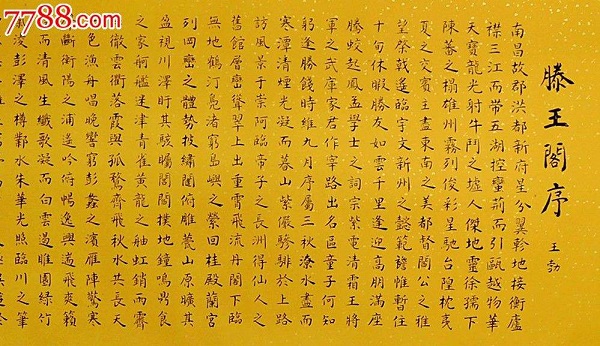 7788.com
滕王閣序 王勃
南昌故郡洪都新府星分翼軫地接衡廬
襟三江而帶五湖控蠻荊而引甌越物華
天寶龍光射牛斗之墟人傑地靈徐孺下
陳蕃之榻雄州霧列俊彩星馳台隍枕夷
夏之交賓主盡東南之美都督閻公之雅
望棨戟遙臨宇文新州之懿範襜惟暫住
十旬休暇勝友如雲千里逢迎高朋滿座
騰蛟起鳳孟學士之詞宗紫電清霜王將
軍之武庫家君作宰路出名區童子何知
躬逢勝餞時維九月序屬三秋潦水盡而
寒潭清煙光凝而暮山紫儼驂騑於上路
訪風景于崇阿臨帝子之長洲得仙人之
舊館層巒聳翠上出重霄飛流丹閣下臨
無地鶴汀鳧渚窮島嶼之縈回桂殿蘭宮
列岡巒之體勢披繡闥俯雕甍山原曠其
盈視川澤盱其駭矚閭閻撲地鐘鳴鼎食
之家舸艦迷津青雀黃龍之舳虹銷雨霽
徹雲衢落霞與孤鶩齊飛秋水共長天
色漁舟唱晚響窮彭蠡之濱雁陣驚寒
斷衡陽之浦遙吟俯暢逸興遄飛爽籟
而清風生纖歌凝而白雲遏睢園綠竹
凌彭澤之樽鄴水朱華光照臨川之筆